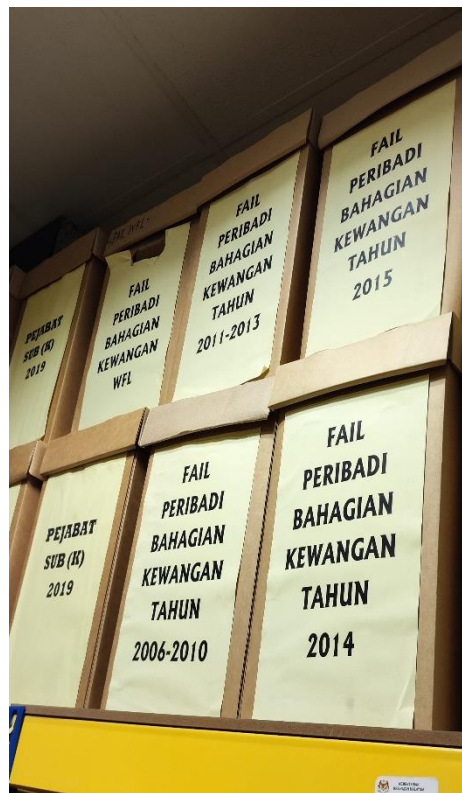 PEJABAT
SUB (K)
2019
FAIL
PERIBADI
BAHAGIAN
KEWANGAN
WFL
FAIL
PERIBADI
BAHAGIAN
KEWANGAN
TAHUN
2011-2013
FAIL
PERIBADI
BAHAGIAN
KEWANGAN
TAHUN
2015
PEJABAT
SUB (K)
2019
FAIL
PERIBADI
BAHAGIAN
KEWANGAN
TAHUN
2006-2010
FAIL
PERIBADI
BAHAGIAN
KEWANGAN
TAHUN
2014